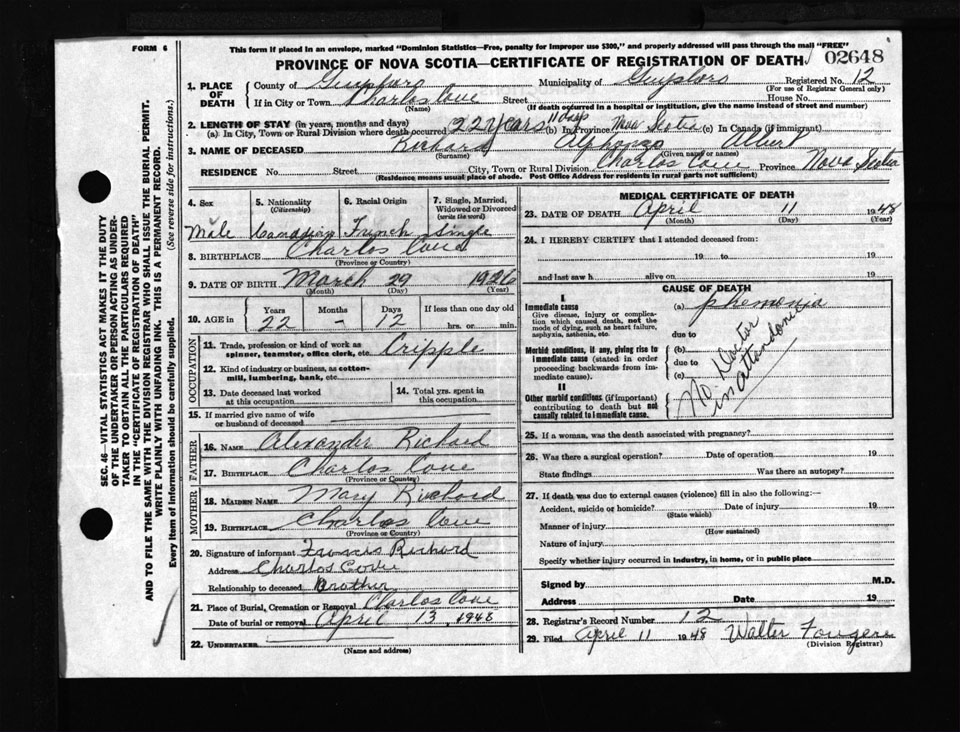 FORM 6
This form if placed in an envelope, marked "Dominion Statistics—Free, penalty for improper use $300," and properly addressed will pass through the mail "FREE"
PROVINCE OF NOVA SCOTIA—CERTIFICATE OF REGISTRATION OF DEATH
02648
1. PLACE OF DEATH
County of Guysboro Municipality of Guysboro Registered No. 12
(For use of Registrar General only)
If in City or Town Charlos Cove Street House No.
(Name) (If death occurred in a hospital or institution, give the name instead of street and number)
2. LENGTH OF STAY (in years, months and days)
(a) In City, Town or Rural Division where death occurred 22 years 11 days (b) In Province Nova Scotia (c) In Canada (if immigrant)
3. NAME OF DECEASED Richard Alphonzo Albert
(Surname) (Given name or names)
RESIDENCE No. Street City, Town or Rural Division Charlos Cove Province Nova Scotia
(Residence means usual place of abode. Post Office Address for residents in rural parts not sufficient)
4. Sex Male
5. Nationality (Citizenship) Canadian
6. Racial Origin French
7. Single, Married, Widowed or Divorced (write the word) Single
8. BIRTHPLACE Charlos Cove
(Province or Country)
9. DATE OF BIRTH March 29 1926
(Month) (Day) (Year)
10. AGE in Years Months Days If less than one day old
22 - 12 hrs. or min.
OCCUPATION
11. Trade, profession or kind of work as spinner, teamster, office clerk, etc. Cripple
12. Kind of industry or business, as cotton-mill, lumbering, bank, etc.
13. Date deceased last worked at this occupation
14. Total yrs. spent in this occupation
15. If married give name of wife or husband of deceased
FATHER
16. NAME Alexander Richard
17. BIRTHPLACE Charlos Cove
(Province or Country)
MOTHER
18. MAIDEN NAME Mary Richard
19. BIRTHPLACE Charlos Cove
(Province or Country)
20. Signature of informant Francis Richard
Address Charlos Cove
Relationship to deceased Brother
21. Place of Burial, Cremation or Removal Charlos Cove
Date of burial or removal April 13, 1948
22. UNDERTAKER
(Name and address)
MEDICAL CERTIFICATE OF DEATH
23. DATE OF DEATH April 11 1948
(Month) (Day)
24. I HEREBY CERTIFY that I attended deceased from:
19 to 19
and last saw h alive on 19
CAUSE OF DEATH
I
Immediate cause (a) phemonia
Give disease, injury or complication which caused death, not the mode of dying, such as heart failure, asphyxia, asthenia, etc.
due to
Morbid conditions, if any, giving rise to immediate cause (stated in order proceeding backwards from immediate cause).
(b)
due to
(c)
II
Other morbid conditions (if important) contributing to death but not causally related to immediate cause.
No Doctor
in attendance
25. If a woman, was the death associated with pregnancy?
26. Was there a surgical operation? Date of operation 19
State findings Was there an autopsy?
27. If death was due to external causes (violence) fill in also the following:—
Accident, suicide or homicide? Date of injury 19
(State which)
Manner of injury
(How sustained)
Nature of injury
Specify whether injury occurred in industry, in home, or in public place
Signed by M.D.
Address Date 19
28. Registrar's Record Number 12
29. Filed April 11 1948 Walter
(Division Registrar)
SEC. 46—VITAL STATISTICS ACT MAKES IT THE DUTY
OF THE UNDERTAKER OR PERSON ACTING AS UNDER-
TAKER TO OBTAIN ALL THE PARTICULARS REQUIRED
IN THE "CERTIFICATE OF REGISTRATION OF DEATH"
AND TO FILE THE SAME WITH THE DIVISION REGISTRAR WHO SHALL ISSUE THE BURIAL PERMIT.
WRITE PLAINLY WITH UNFADING INK. THIS IS A PERMANENT RECORD.
Every item of information should be carefully supplied. (See reverse side for instructions.)